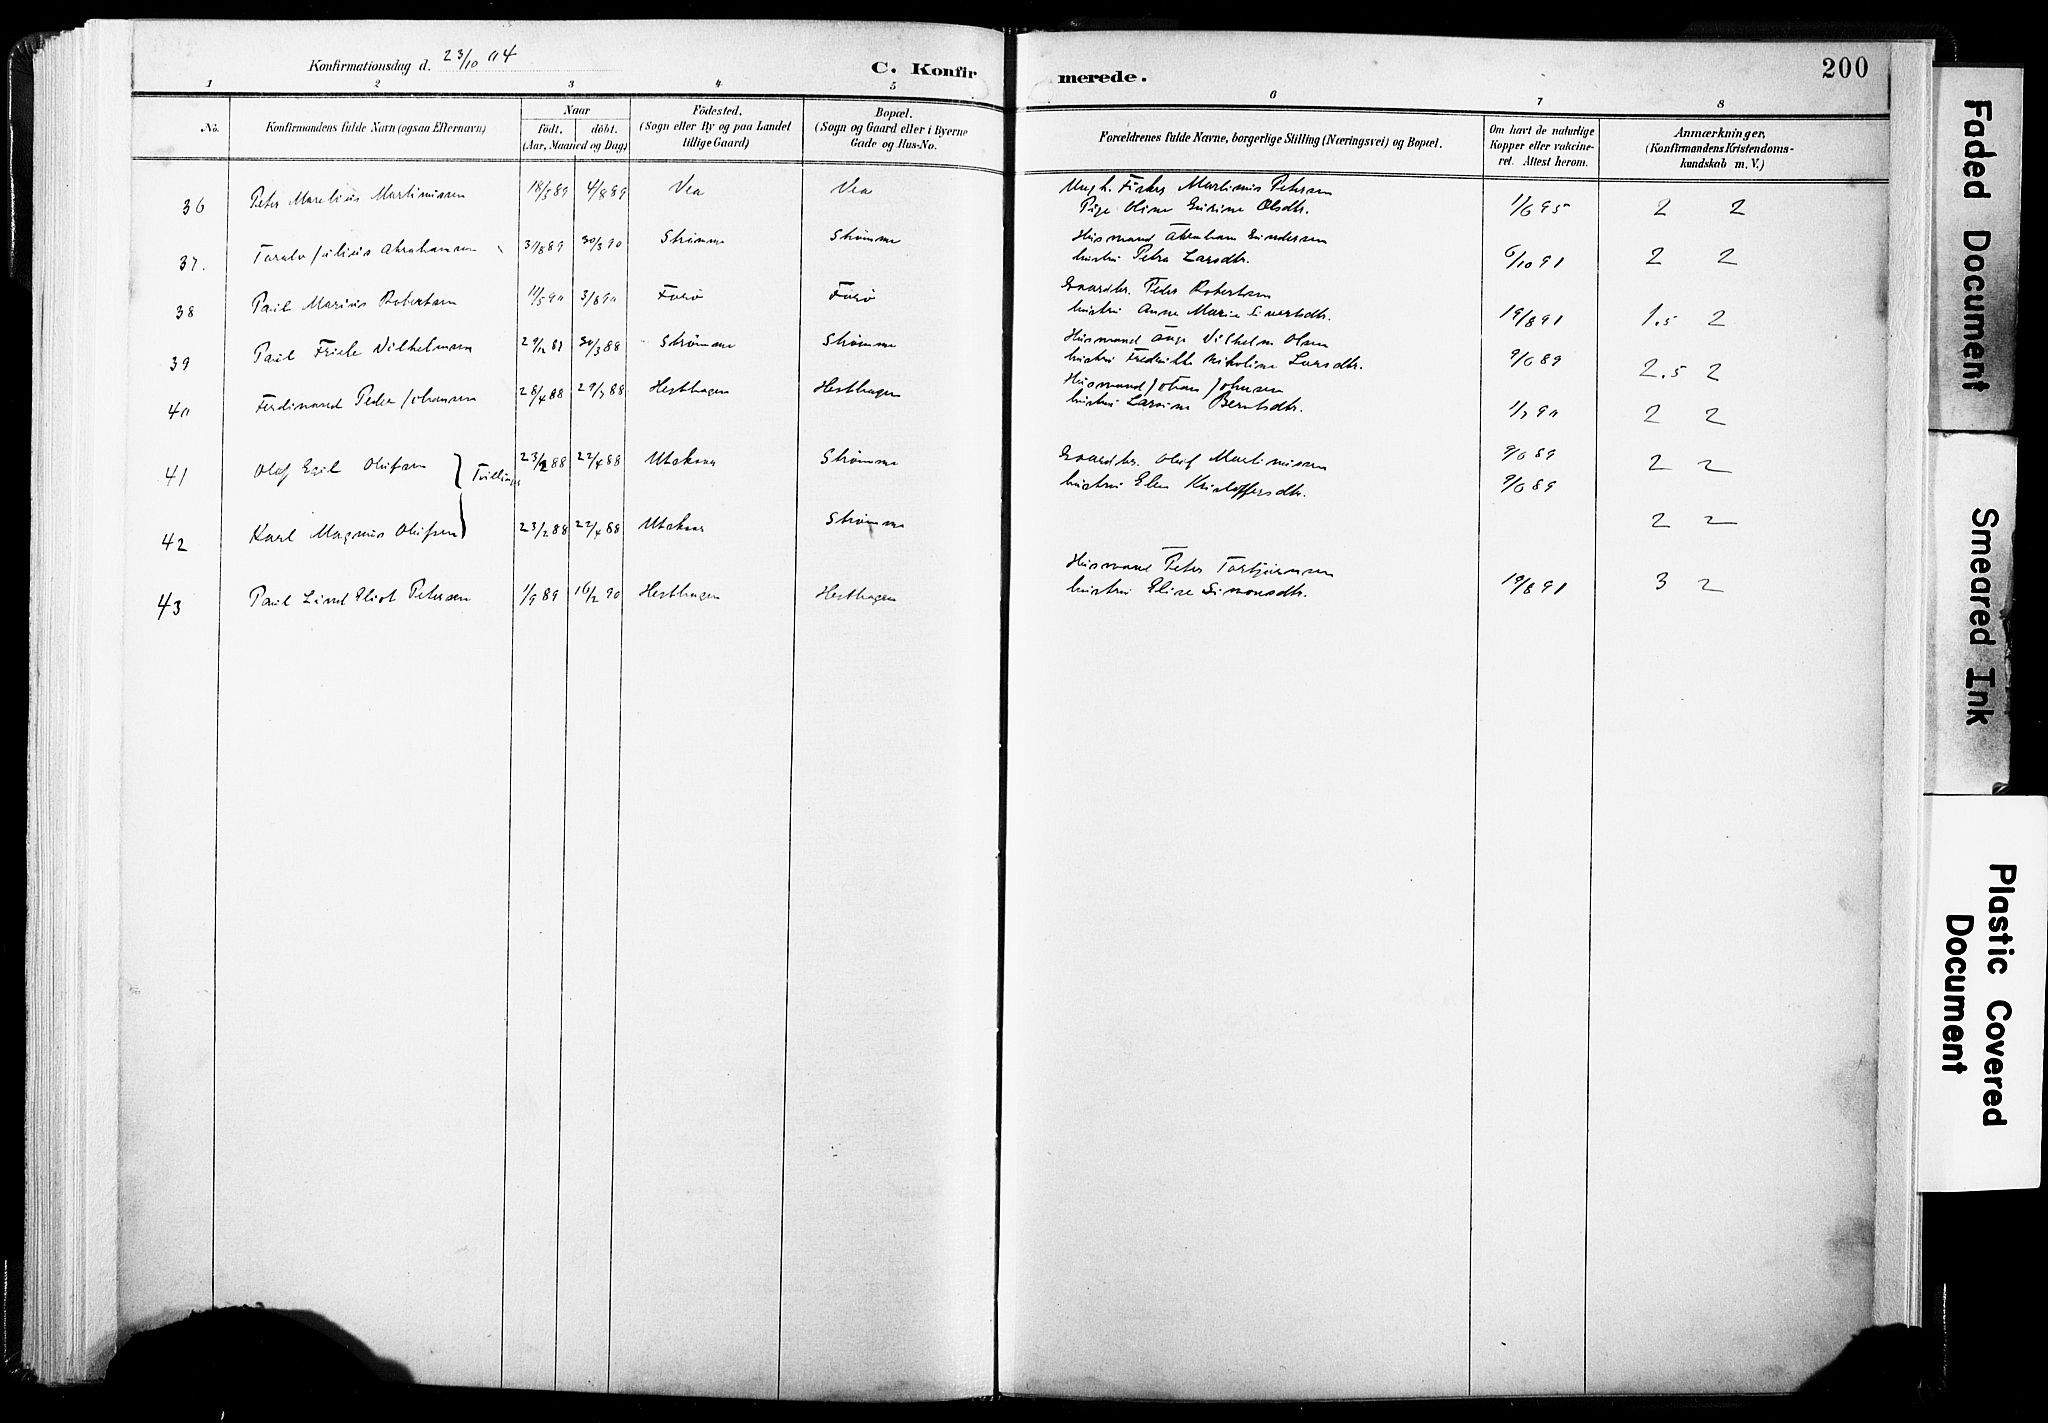 Konfirmationsdag d. 23/10 04
C. Konfirmerede.
200
1 2 3 4 5 6 7 8
No.
Konfirmandens fulde Navn (ogsaa Efternavn)
Naar
födt. döbt.
(Aar, Maaned og Dag)
Födested.
(Sogn eller By og paa Landet
tillige Gaard)
Bopæl.
(Sogn og Gaard eller i Byerne
Gade og Hus-No.
Forældrenes fulde Navne, borgerlige Stilling (Næringsvei) og Bopæl.
Om havt de naturlige
Kopper eller vakcine-
ret. Attest herom.
Anmærkninger,
(Konfirmandens Kristendoms-
kundskab m. V.)
36 Peter Marelius Martinussen 18/5 89 4/8 89 Vea Vea Ungk. Fisker Martinus Petersen
Pige Oline Gurine Olsdtr. 1/6 95 2 2
37. Toralv Julius Abrahamsen 31/8 89 30/3 90 Strømme Strømme Husmand Abraham Gundersen
hustru Petra Larsdtr. 6/10 91 2 2
38 Paul Marius Robertsen 11/5 90 3/8 90 Fosø Fosø Gaardbr. Peder Robertsen
hustru Anne Marie Sivertsdtr. 19/8 91 1.5 2
39 Paul Friele Vilhelmsen 29/12 87 30/3 88 Strømme Strømme Husmand Aage Vilhelm Olsen
hustru Fredrikke Nikoline Larsdtr. 9/6 89 2.5 2
40 Ferdinand Peder Johansen 28/4 88 29/7 88 Hesthagen Hesthagen Husmand Johan Johnsen
hustru Larsine Berntsdtr. 1/7 90 2 2
41 Olaf Egil Olufsen Tvillinger 23/2 88 22/4 88 Utskaar Strømme Gaardbr. Oluf Martinussen 9/6 89 2 2
hustru Elen Kristoffersdtr. 9/6 89
42 Karl Magnus Olufsen 23/2 88 22/4 88 Utskaar Strømme 2 2
43 Paul Lund Eliot Petersen 1/9 89 16/2 90 Hesthagen Hesthagen Husmand Peter Torbjørnsen
hustru Elise Simonsdtr. 19/8 91 3 2
Faded Document
Smeared Ink
Plastic Covered
Document